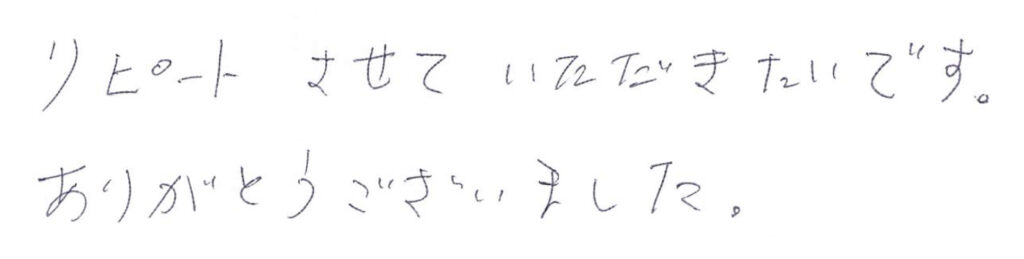 リピート させて いただきたいです。
ありがとうございました。